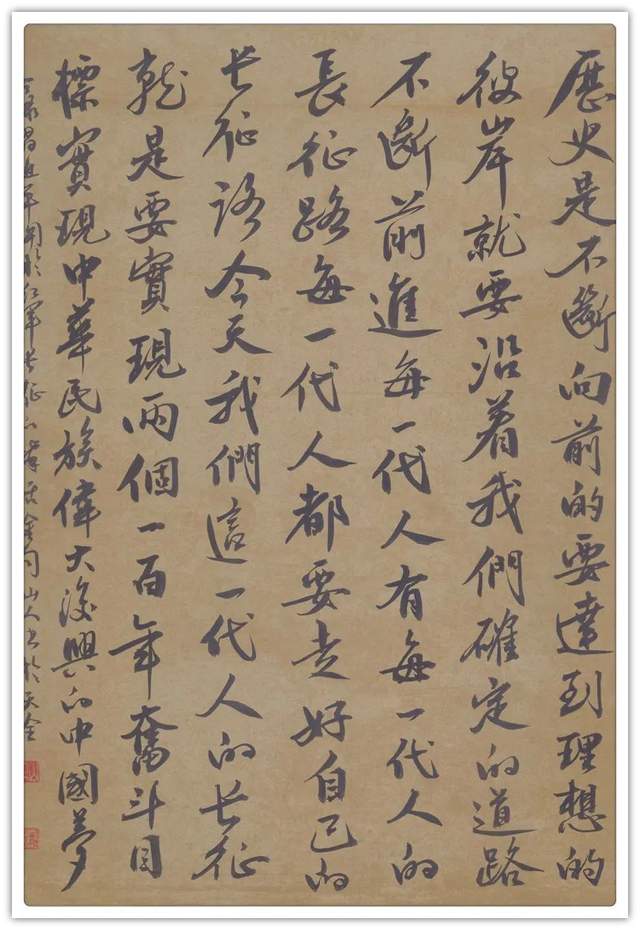 歷史是不斷向前的要達到理想的
彼岸就要沿着我們確定的道路
不斷前進每一代人有每一代人的
長征路每一代人都要走好自己的
长征路今天我們這一代人的长征
就是要實現兩個一百年奮斗目
標實現中華民族偉大復興的中國夢
录習近平關於紅軍长征
金句山人书於天全